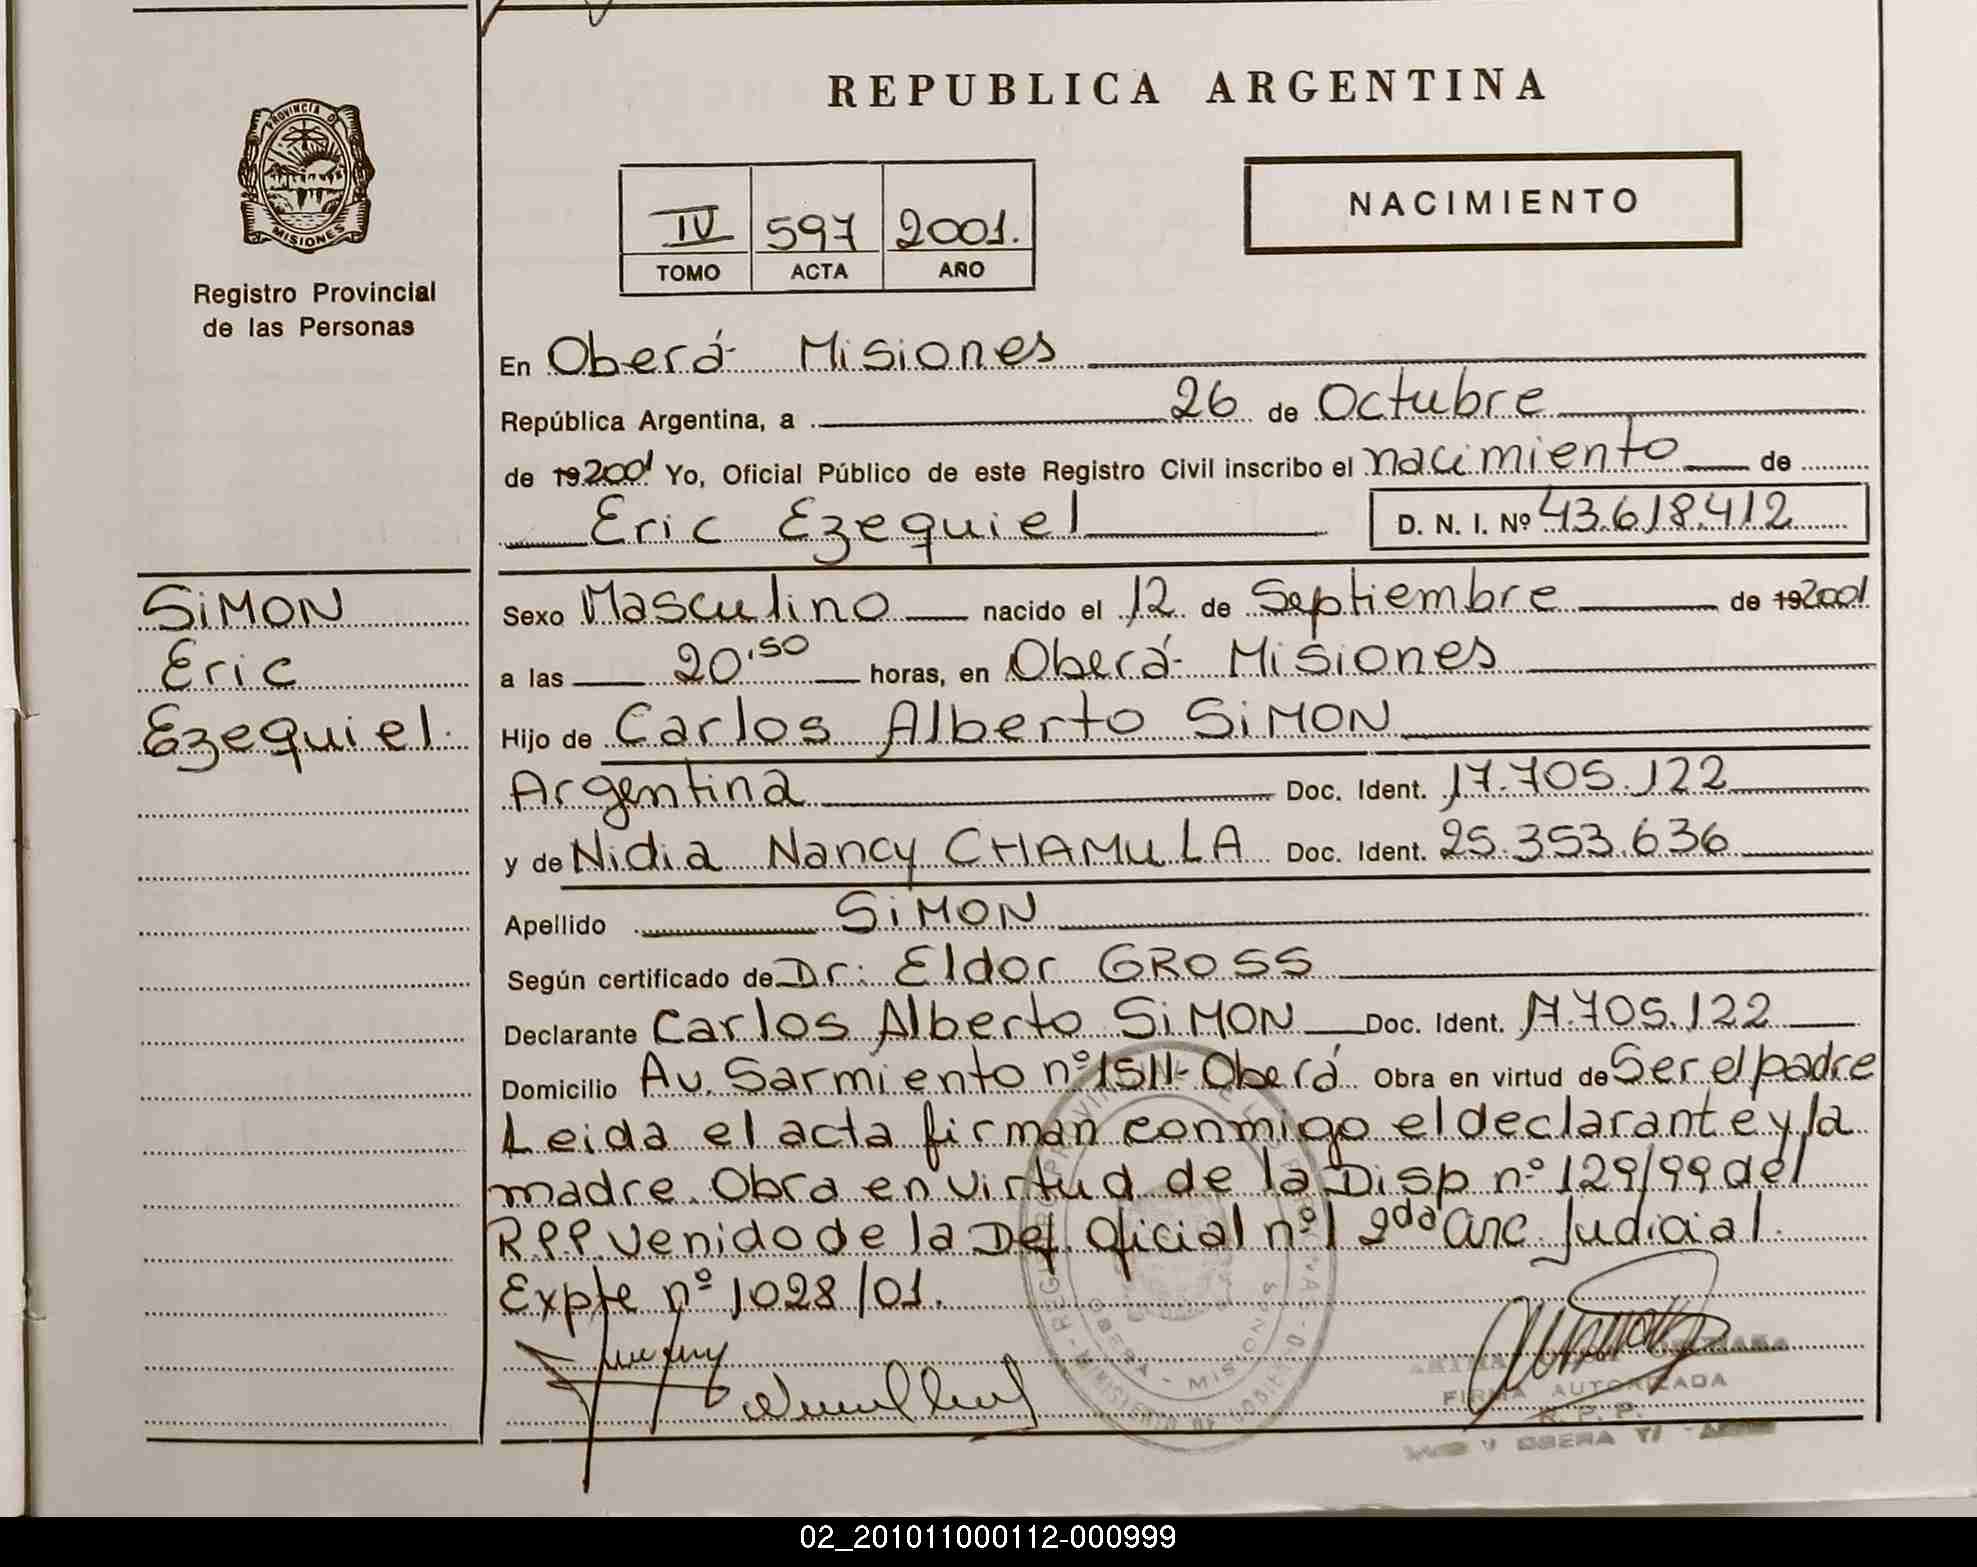 REPUBLICA ARGENTINA
PROVINCIA DE
MISIONES
Registro Provincial
de las Personas
IV 597 2001.
TOMO ACTA AÑO
NACIMIENTO
En Oberá- Misiones
República Argentina, a 26 de Octubre
de 19 2001 Yo, Oficial Público de este Registro Civil inscribo el nacimiento de
Eric Ezequiel D. N. I. Nº 43.618.412
SiMON
Eric
Ezequiel.
Sexo Masculino nacido el 12 de Septiembre de 19 2001
a las 20,50 horas, en Oberá- Misiones
Hijo de Carlos Alberto SiMON
Argentina Doc. Ident. 17.705.122
y de Nidia Nancy CHAMuLA Doc. Ident. 25.353.636
Apellido SiMON
Según certificado de Dr: Eldor GROSS
Declarante Carlos Alberto SiMON Doc. Ident. 17.705.122
Domicilio Av. Sarmiento nº 1511- Oberá Obra en virtud de Ser el padre
Leida el acta firman conmigo el declarante y la
madre. Obra en virtud de la Disp nº 129/99 del
R.P.P. venido de la Def. Oficial nº 1 2da Circ. Judicial.
Expte nº 1028/01.
OBERA - MISIONES
FIRMA AUTORIZADA
R. P. P.
OBERA
02_201011000112-000999